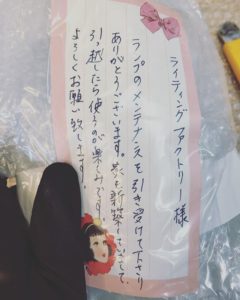 ライティングファクトリー様
ランプのメンテナンスを引き受けて下さり
ありがとうございます。家を新築していまして
引っ越したら使うのが楽しみです。
よろしくお願い致します。